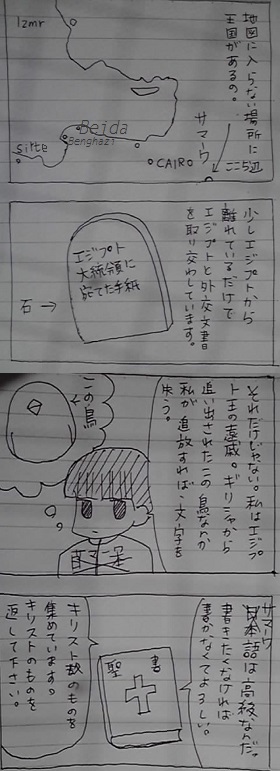 地図に入らない場所に
王国があるの。
サマーワ
ここら辺
Izmr
Beida
Benghazi
sirte
CAIRO
少しエジプトから
離れているだけで
エジプトと外交文書
を取り交わしています。
エジプト
大統領に
宛てた手紙
石→
それだけじゃない。私はエジプ
ト王の遠戚。ギリシャから
追い出されたこの鳥なんか
私が追放すれば、文字を
失う。
この鳥
サマーワ
日本語は高級なんだ。
書きたくなければ
書かなくてよろしい。
聖書
キリスト教のものを
集めています。
キリストのものを
返して下さい。